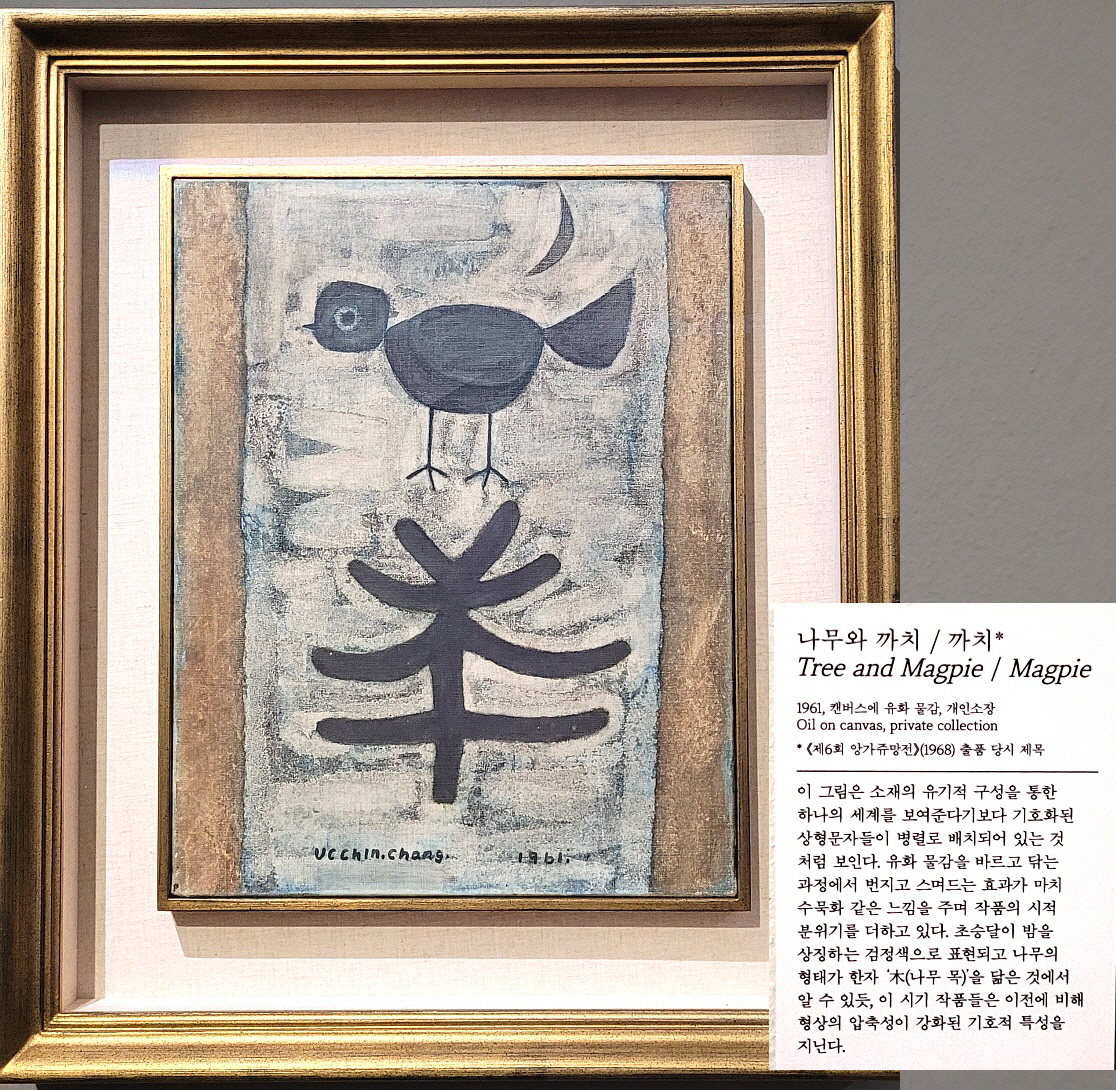 UCChin.Chang. 1961.
나무와 까치 / 까치*
Tree and Magpie / Magpie
1961, 캔버스에 유화 물감, 개인소장
Oil on canvas, private collection
* 《제6회 앙가쥬망전》(1968) 출품 당시 제목
이 그림은 소재의 유기적 구성을 통한
하나의 세계를 보여준다기보다 기호화된
상형문자들이 병렬로 배치되어 있는 것
처럼 보인다. 유화 물감을 바르고 닦는
과정에서 번지고 스며드는 효과가 마치
수묵화 같은 느낌을 주며 작품의 시적
분위기를 더하고 있다. 초승달이 밤을
상징하는 검정색으로 표현되고 나무의
형태가 한자 ‘木(나무 목)’을 닮은 것에서
알 수 있듯, 이 시기 작품들은 이전에 비해
형상의 압축성이 강화된 기호적 특성을
지닌다.